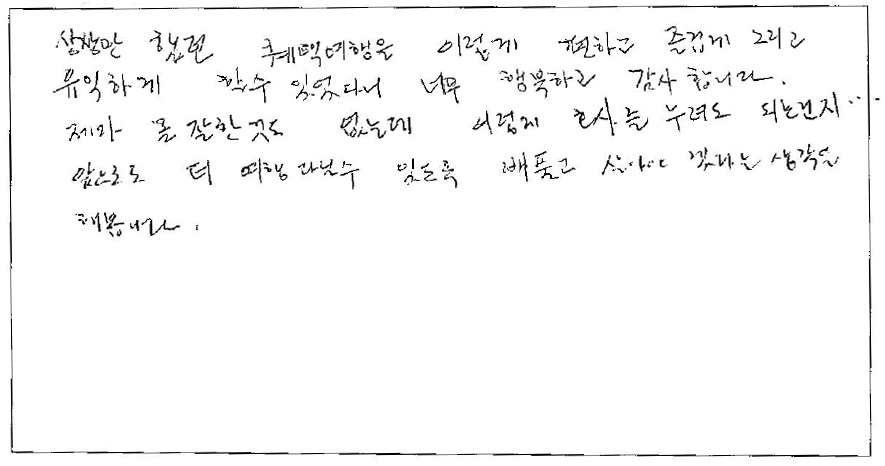 상상만 했던 크루즈여행을 이렇게 편하고 즐겁게 그리고
유익하게 할수 있었다니 너무 행복하고 감사합니다.
제가 뭘 잘한것도 없는데 이렇게 호사를 누려도 되는건지...
앞으로도 더 여행 다닐수 있도록 베풀고 살아야 겠다는 생각을
해봅니다.